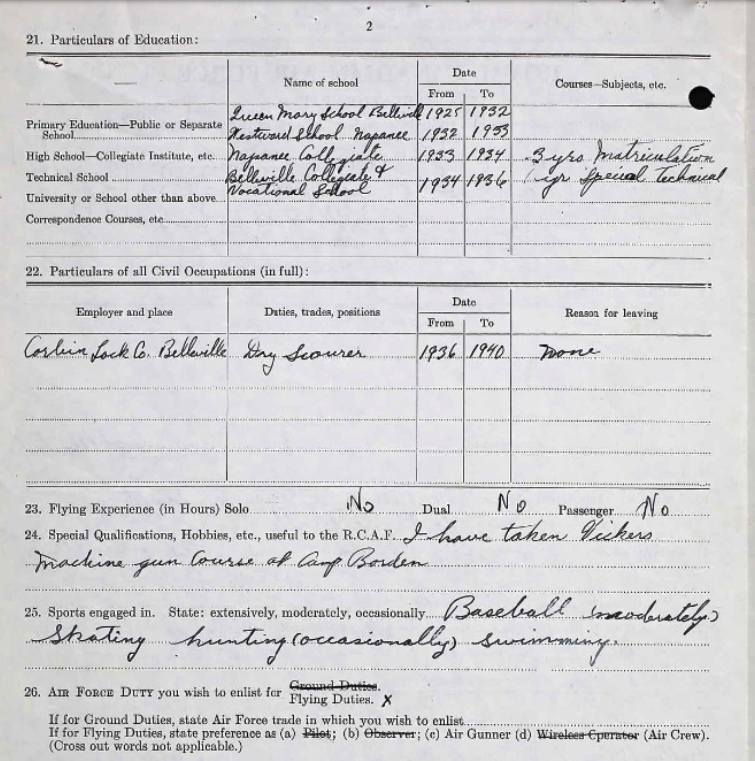 2
21. Particulars of Education:
Name of school
Date
From
To
Courses—Subjects, etc.
Primary Education—Public or Separate School
Queen Mary School Belleville 1925 1932
Westward School Napanee 1932 1933
High School—Collegiate Institute, etc. Napanee Collegiate 1933 1934 3 yrs Matriculation
Technical School Belleville Collegiate & 1934 1936 1 yr Special Technical
Vocational School
University or School other than above
Correspondence Courses, etc.
22. Particulars of all Civil Occupations (in full):
Employer and place
Duties, trades, positions
Date
From
To
Reason for leaving
Corbin Lock Co. Belleville Dry Scourer 1936 1940 none
23. Flying Experience (in Hours) Solo No Dual No Passenger No
24. Special Qualifications, Hobbies, etc., useful to the R.C.A.F. I have taken Vickers
Machine gun Course at Camp Borden
25. Sports engaged in. State: extensively, moderately, occasionally. Baseball (moderately)
Skating hunting (occasionally) swimming.
26. AIR FORCE DUTY you wish to enlist for Ground Duties.
Flying Duties. X
If for Ground Duties, state Air Force trade in which you wish to enlist
If for Flying Duties, state preference as (a) Pilot; (b) Observer; (c) Air Gunner (d) Wireless Operator (Air Crew).
(Cross out words not applicable.)